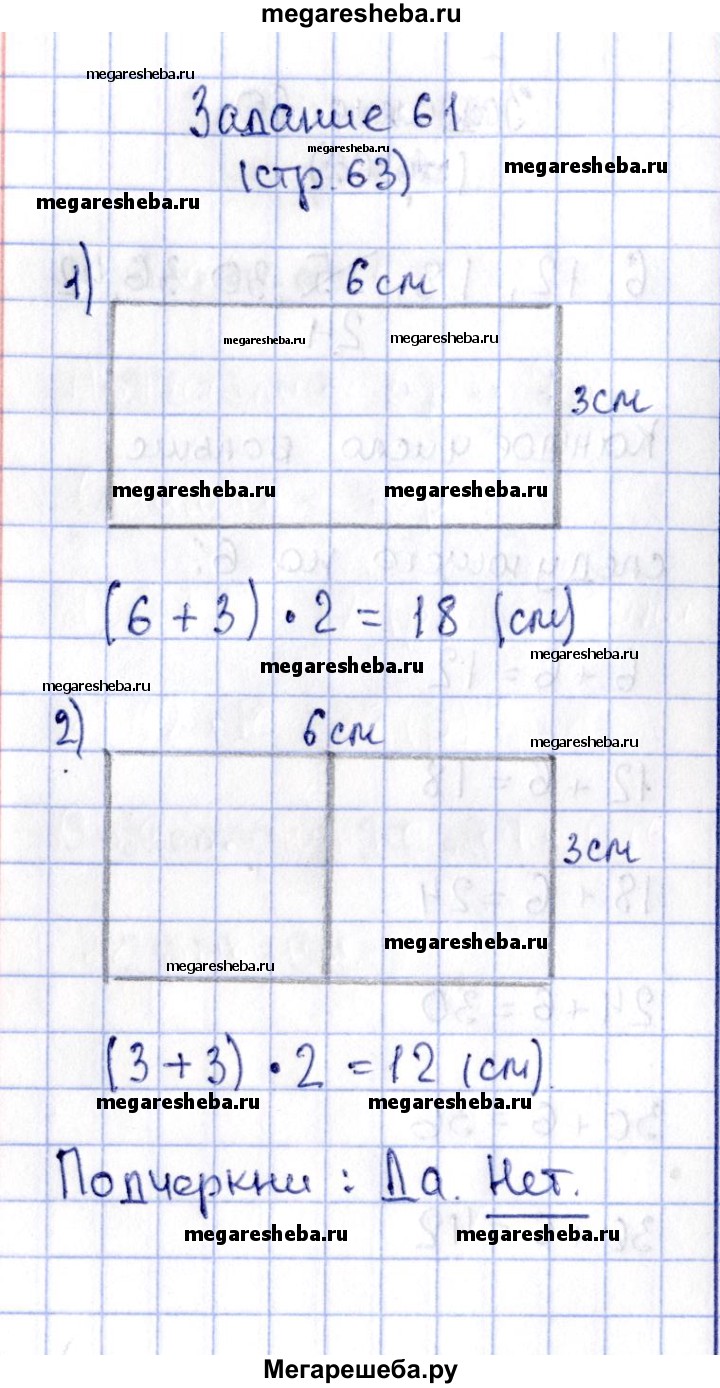 megaresheba.ru
megaresheba.ru
Задание 61
megaresheba.ru
megaresheba.ru
(стр. 63)
megaresheba.ru
1)
6 см
megaresheba.ru
megaresheba.ru
3 см
megaresheba.ru
megaresheba.ru
(6 + 3) • 2 = 18 (см)
megaresheba.ru
megaresheba.ru
megaresheba.ru
2)
6 см
megaresheba.ru
3 см
megaresheba.ru
megaresheba.ru
(3 + 3) • 2 = 12 (см).
megaresheba.ru
megaresheba.ru
Подчеркни : Да. Нет.
megaresheba.ru
megaresheba.ru
Мегарешеба.ру